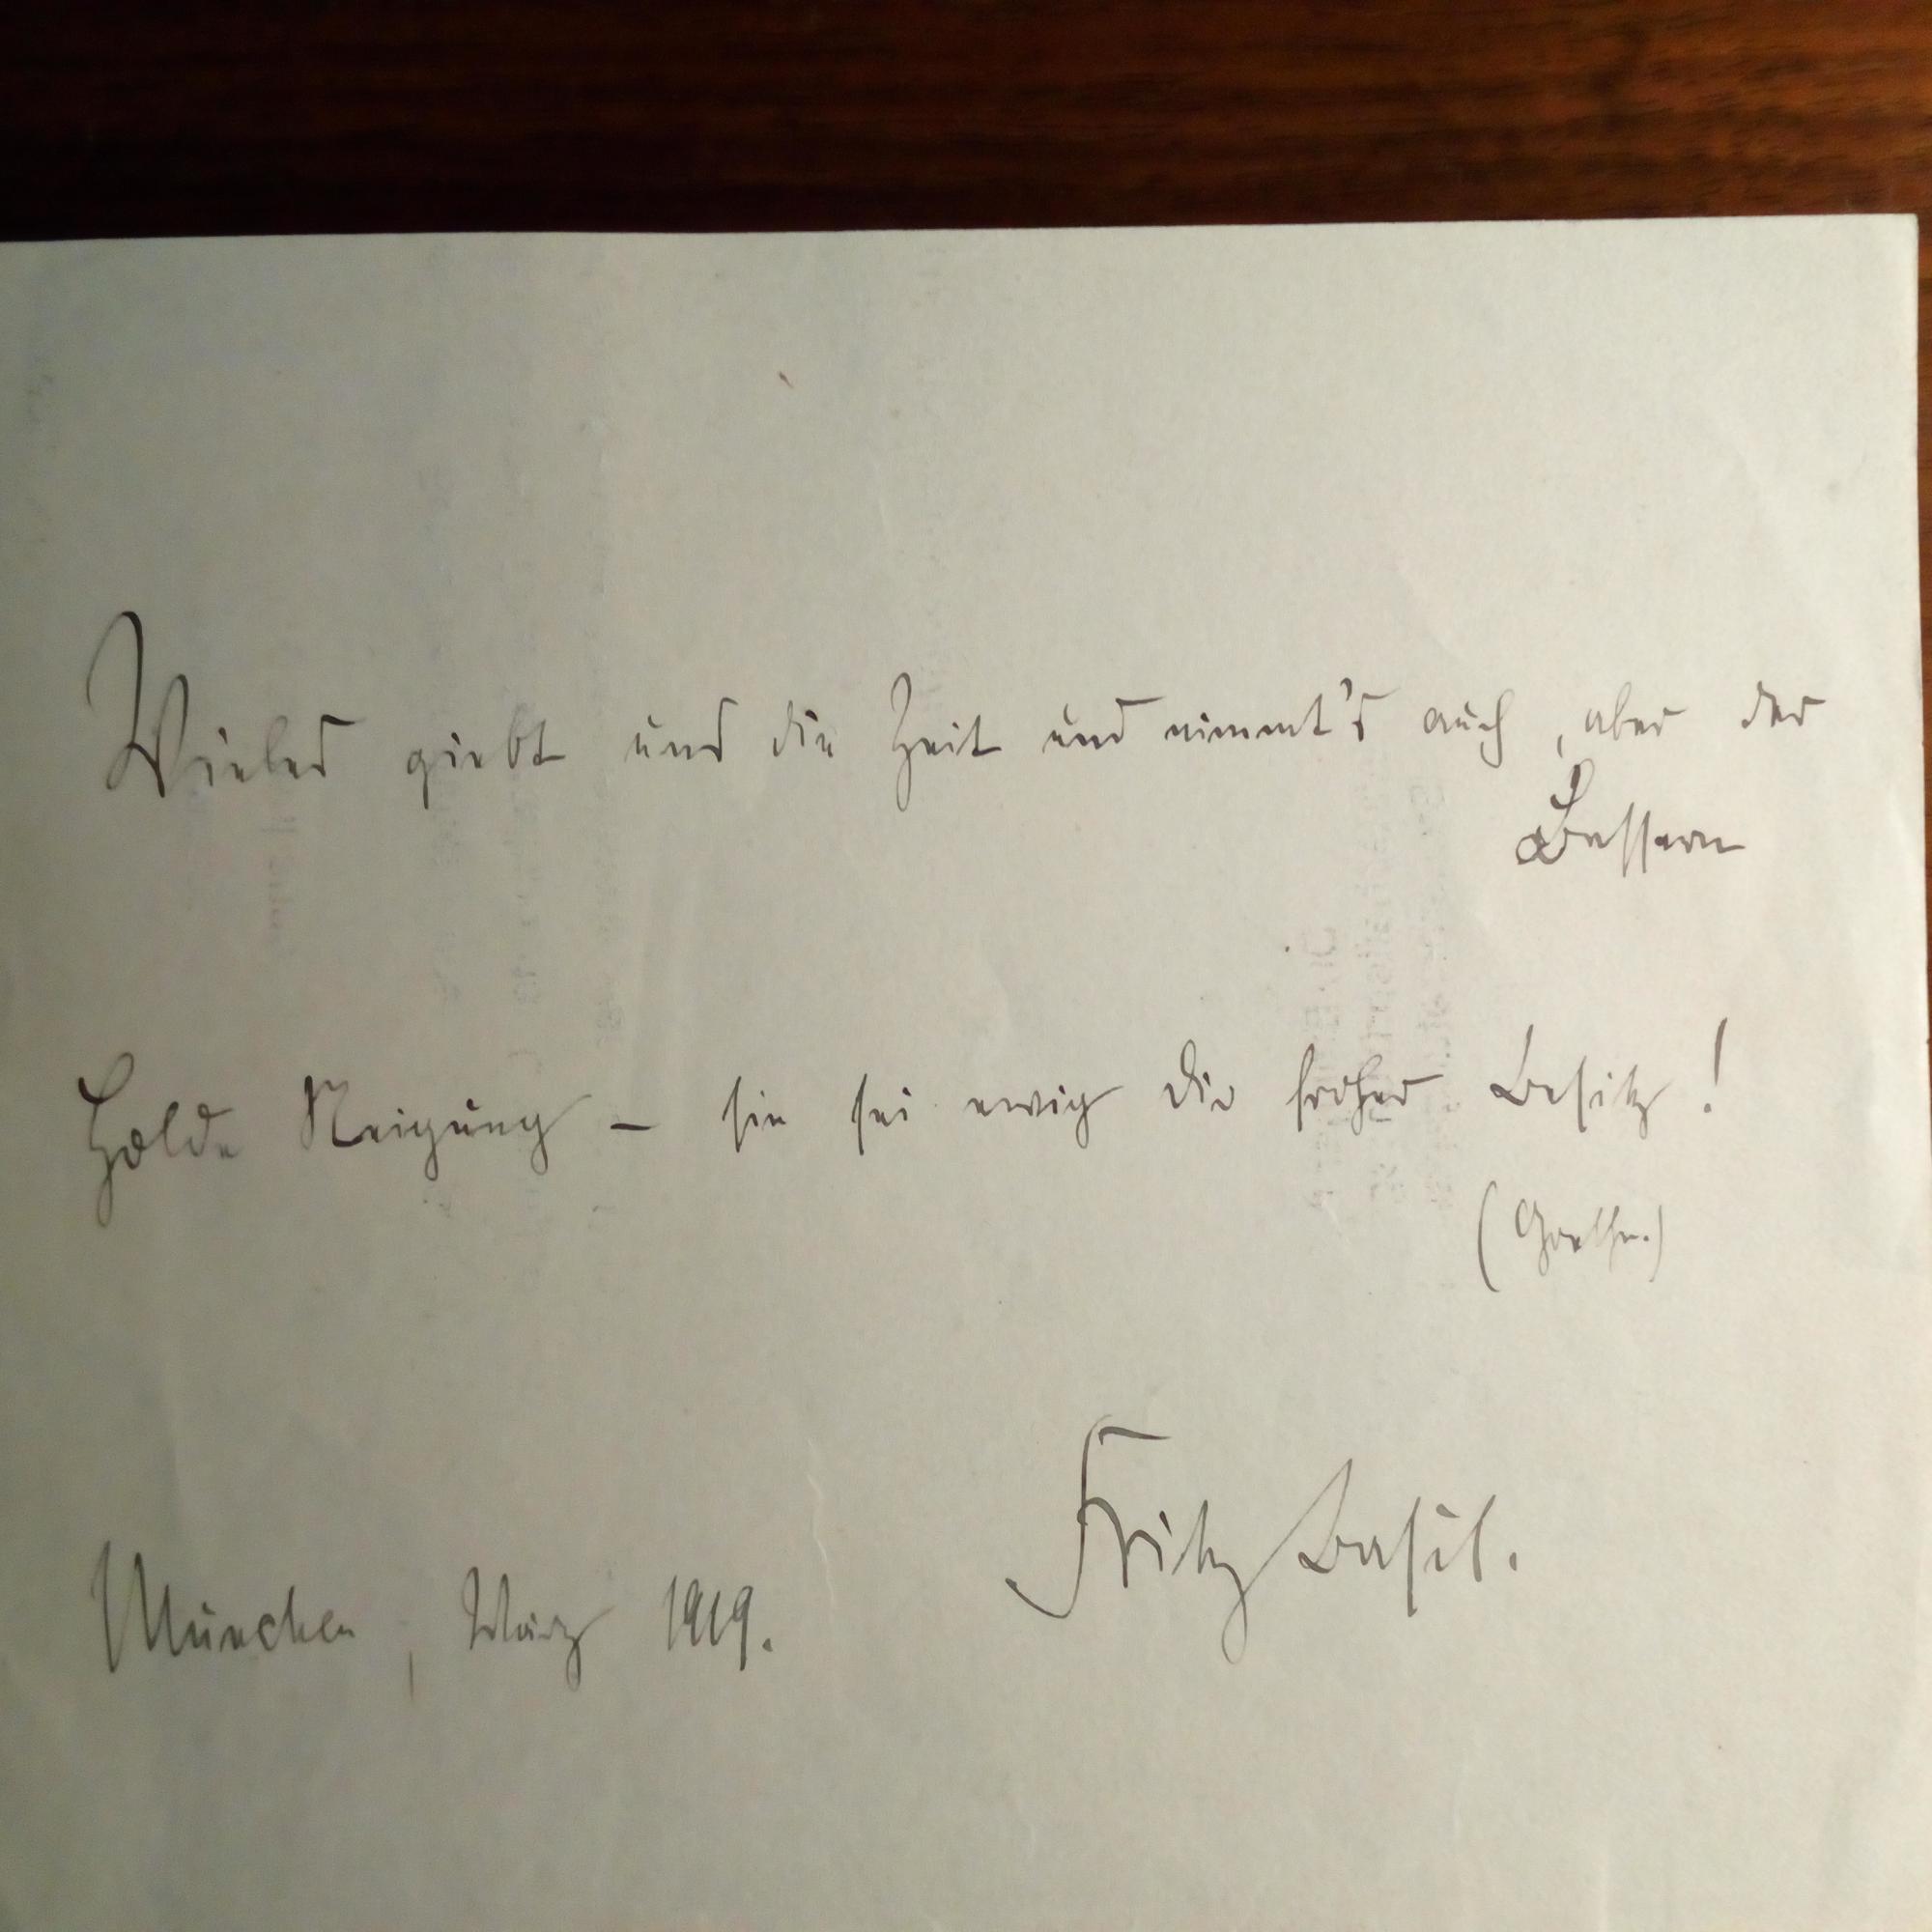 Vieles giebt uns die Zeit und nimmt's auch, aber der
Bessern
Holde Neigung – sie sei ewig dir froher Besitz!
(Goethe.)
Fritz Basil.
München, März 1919.